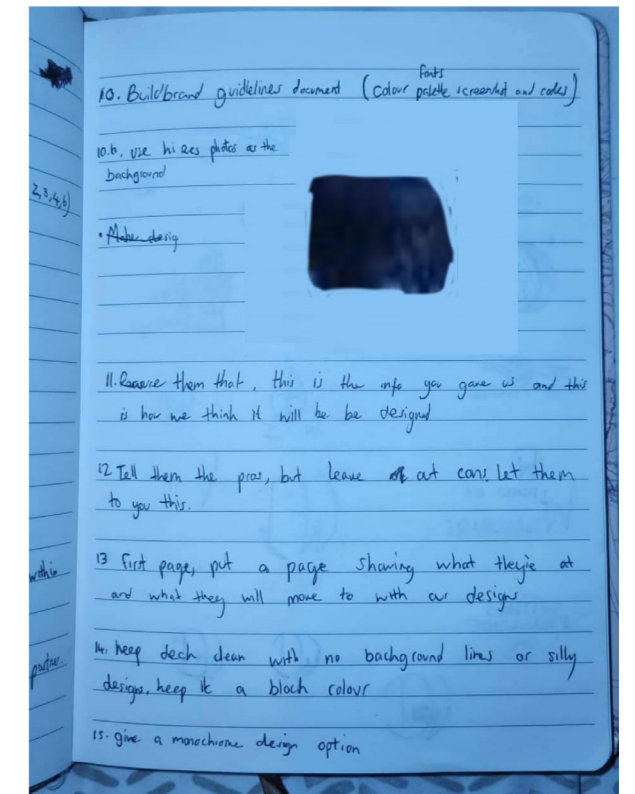 Fonts
10. Build brand guidlelines document (colour palette screenshot and codes)
10.b. use hi res photos as the
background
2,3,4,6)
• Make desig
11. Reasure them that, this is the info you gave us and this
is how we think it will be be designed
12 Tell them the pros, but leave out cons. Let them
to you this.
13 First page, put a page showing what they're at
and what they will move to with our designs
within
14. keep deck clean with no background lines or silly
designs, keep it a block colour
partner.
15. give a monochrome design option